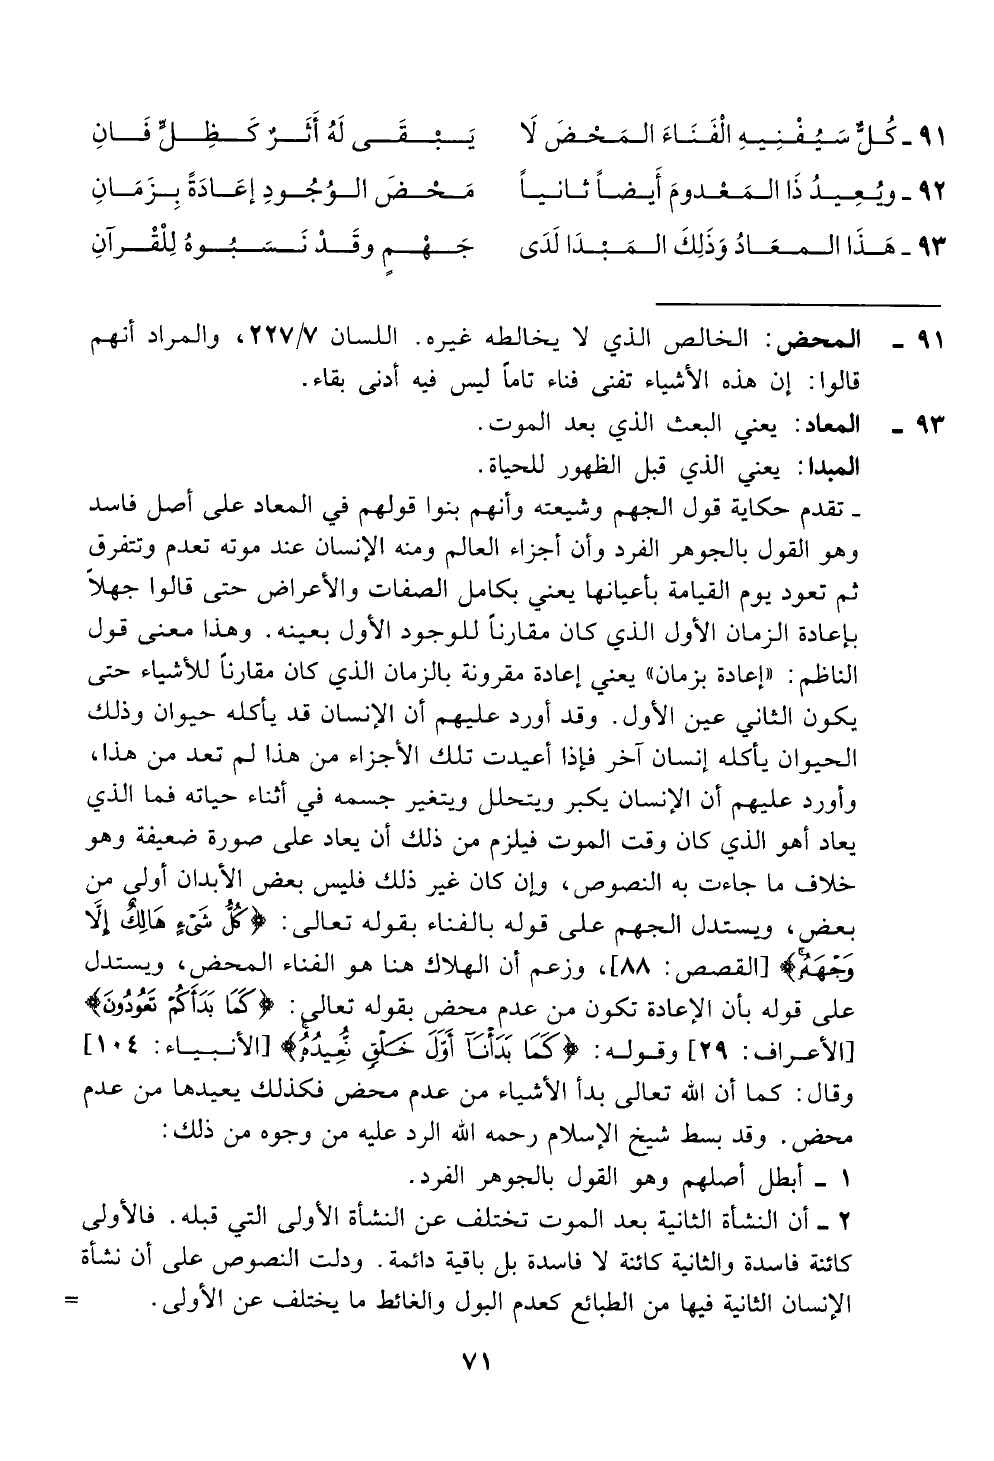 ٩١ ـ كُلٌّ سَيُفْنِيهِ الْفَنَاءَ المَحْضَ لَا يَبْقَى لَهُ أَثَرٌ كَظِلٍّ فَانِ
٩٢ ـ ويُعِيدُ ذَا المَعْدومَ أَيضاً ثانياً مَحْضَ الوُجُودِ إعَادَةً بِزَمَانِ
٩٣ ـ هَذَا المعَادُ وَذَلِكَ المَبْدَا لَدَى جَهْمٍ وقَدْ نَسَبُوهُ لِلْقُرآنِ
٩١ ـ المحض: الخالص الذي لا يخالطه غيره. اللسان ٢٢٧/٧، والمراد أنهم
قالوا: إن هذه الأشياء تفنى فناء تاماً ليس فيه أدنى بقاء.
٩٣ ـ المعاد: يعني البعث الذي بعد الموت.
المبدا: يعني الذي قبل الظهور للحياة.
ـ تقدم حكاية قول الجهم وشيعته وأنهم بنوا قولهم في المعاد على أصل فاسد
وهو القول بالجوهر الفرد وأن أجزاء العالم ومنه الإنسان عند موته تعدم وتتفرق
ثم تعود يوم القيامة بأعيانها يعني بكامل الصفات والأعراض حتى قالوا جهلاً
بإعادة الزمان الأول الذي كان مقارناً للوجود الأول بعينه. وهذا معنى قول
الناظم: «إعادة بزمان» يعني إعادة مقرونة بالزمان الذي كان مقارناً للأشياء حتى
يكون الثاني عين الأول. وقد أورد عليهم أن الإنسان قد يأكله حيوان وذلك
الحيوان يأكله إنسان آخر فإذا أعيدت تلك الأجزاء من هذا لم تعد من هذا،
وأورد عليهم أن الإنسان يكبر ويتحلل ويتغير جسمه في أثناء حياته فما الذي
يعاد أهو الذي كان وقت الموت فيلزم من ذلك أن يعاد على صورة ضعيفة وهو
خلاف ما جاءت به النصوص، وإن كان غير ذلك فليس بعض الأبدان أولى من
بعض، ويستدل الجهم على قوله بالفناء بقوله تعالى: ﴿كُلُّ شَىْءٍ هَالِكٌ إِلَّا
وَجْهَهُۥ﴾ [القصص: ٨٨]، وزعم أن الهلاك هنا هو الفناء المحض، ويستدل
على قوله بأن الإعادة تكون من عدم محض بقوله تعالى: ﴿كَمَا بَدَأَكُمْ تَعُودُونَ﴾
[الأعراف: ٢٩] وقوله: ﴿كَمَا بَدَأْنَآ أَوَّلَ خَلْقٍ نُّعِيدُهُۥ﴾ [الأنبياء: ١٠٤]
وقال: كما أن الله تعالى بدأ الأشياء من عدم محض فكذلك يعيدها من عدم
محض. وقد بسط شيخ الإسلام رحمه الله الرد عليه من وجوه من ذلك:
١ ـ أبطل أصلهم وهو القول بالجوهر الفرد.
٢ ـ أن النشأة الثانية بعد الموت تختلف عن النشأة الأولى التي قبله. فالأولى
كائنة فاسدة والثانية كائنة لا فاسدة بل باقية دائمة. ودلت النصوص على أن نشأة
الإنسان الثانية فيها من الطبائع كعدم البول والغائط ما يختلف عن الأولى. =
٧١